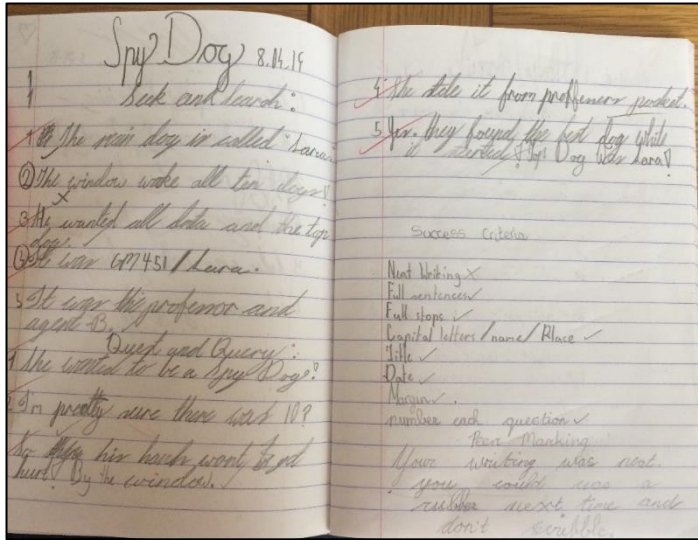 Spy Dog 8.04.19
Seek and Search:
1 The main dog is called "Lara"
2 The window woke all ten dogs!
3 He wanted all data and the top
dogs.
4 It was GM451/Lara.
5 It was the professor and
agent B.
Quest and Query:
1 She wanted to be a Spy Dog!
2 I'm pretty sure there was 10?
his hand went to get
hurt! By the window.
4 She stole it from proffeners pocket.
5 Yes. they found the best dog while
it Top Dog was Lara!
Success Criteria
Neat Writing x
Full sentences ✓
Full stops ✓
Capital letters/name/Place ✓
Title ✓
Date ✓
Margin ✓.
number each question ✓
Peer Marking
Your writing was neat.
you could use a
rubber next time and
don't scribble.